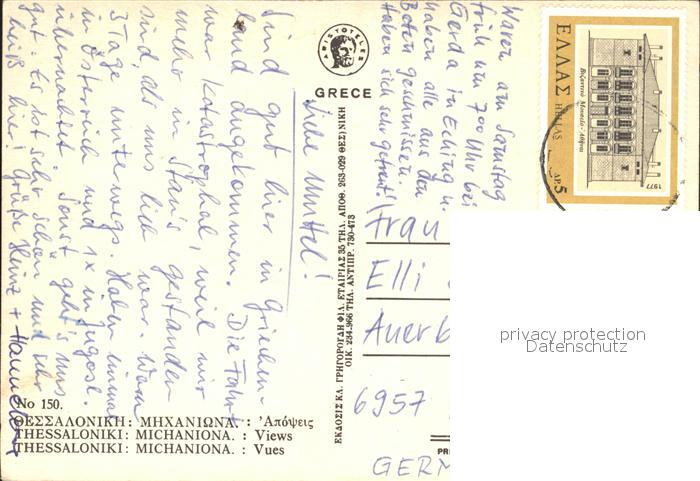 Liebe Mutti!
Sind gut hier in Griechen-
land angekommen. Die Fahrt
war katastrophal, weil wir
mehr in Stau's gestanden
sind, als uns lieb war. Waren
3 Tage unterwegs. Haben einmal
in Österreich und 1x in Jugosl.
übernachtet. Sonst geht's uns
gut. Es ist sehr schön und sehr
heiß hier! Grüße Heinz +
Waren am Samstag
früh um 7 00 Uhr bei
Gerda in Eching u.
haben alle aus den
Betten geschmissen.
Haben sich sehr gefreut!
ARISTOTELES
GRECE
ΕΛΛΑΣ HELLAS
Βυζαντινό Μουσείο - Αθήναι
ΔΡ 5
1977
ΕΚΔΟΣΙΣ ΚΛ. ΓΡΗΓΟΡΟΓΔΗ ΦΙΛ. ΕΤΑΙΡΙΑΣ 35 ΤΗΛ. ΑΠΟΘ. 263-029 ΘΕΣ)ΝΙΚΗ
ΟΙΚ. 234-966 ΤΗΛ. ΑΝΤΙΠΡ. 730-473
Frau
Elli
Auerb
6957
GERM
PRI
privacy protection
Datenschutz
No 150.
ΘΕΣΣΑΛΟΝΙΚΗ: ΜΗΧΑΝΙΩΝΑ. : Ἀπόψεις
THESSALONIKI: MICHANIONA. : Views
THESSALONIKI: MICHANIONA. : Vues